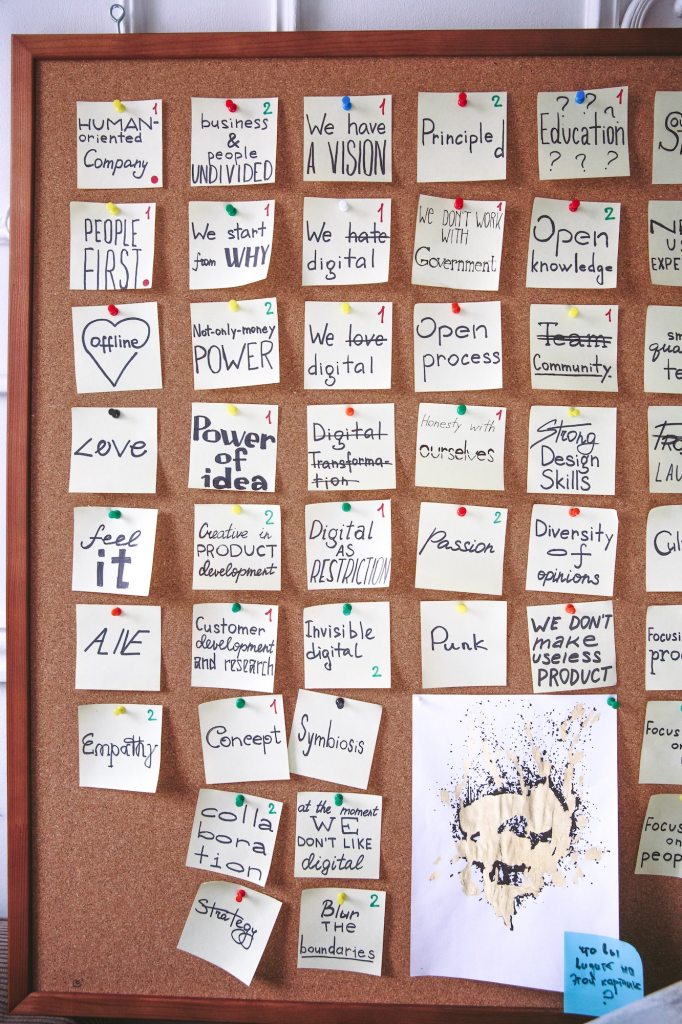 1
HUMAN-
oriented
Company
2
business
&
people
UNDIVIDED
1
We have
A VISION
2
Principled
1
? ? ?
Education
? ? ?
1
PEOPLE
FIRST
1
We start
from WHY
1
We hate
digital
1
WE DON'T WORK
WITH
Government
2
Open
knowledge
Offline
2
Not-only-money
POWER
1
We love
digital
Open
process
1
Team
Community
LOVE
1
Power
of
idea
Digital
Transforma-
tion
1
Honesty with
ourselves
Strong
Design
Skills
feel
it
2
Creative in
PRODUCT
development
1
Digital
AS
RESTRICTION
2
Passion
Diversity
of
opinions
A͟I͟E
1
Customer
development
and research
Invisible
digital
2
Punk
WE DON'T
make
useless
PRODUCT
2
Empathy
1
Concept
Symbiosis
2
colla
bora
tion
at the moment
WE
DON'T LIKE
digital
Focus
on
Strategy
2
Blur
THE
boundaries
что вы
видите на
этой картинке
?